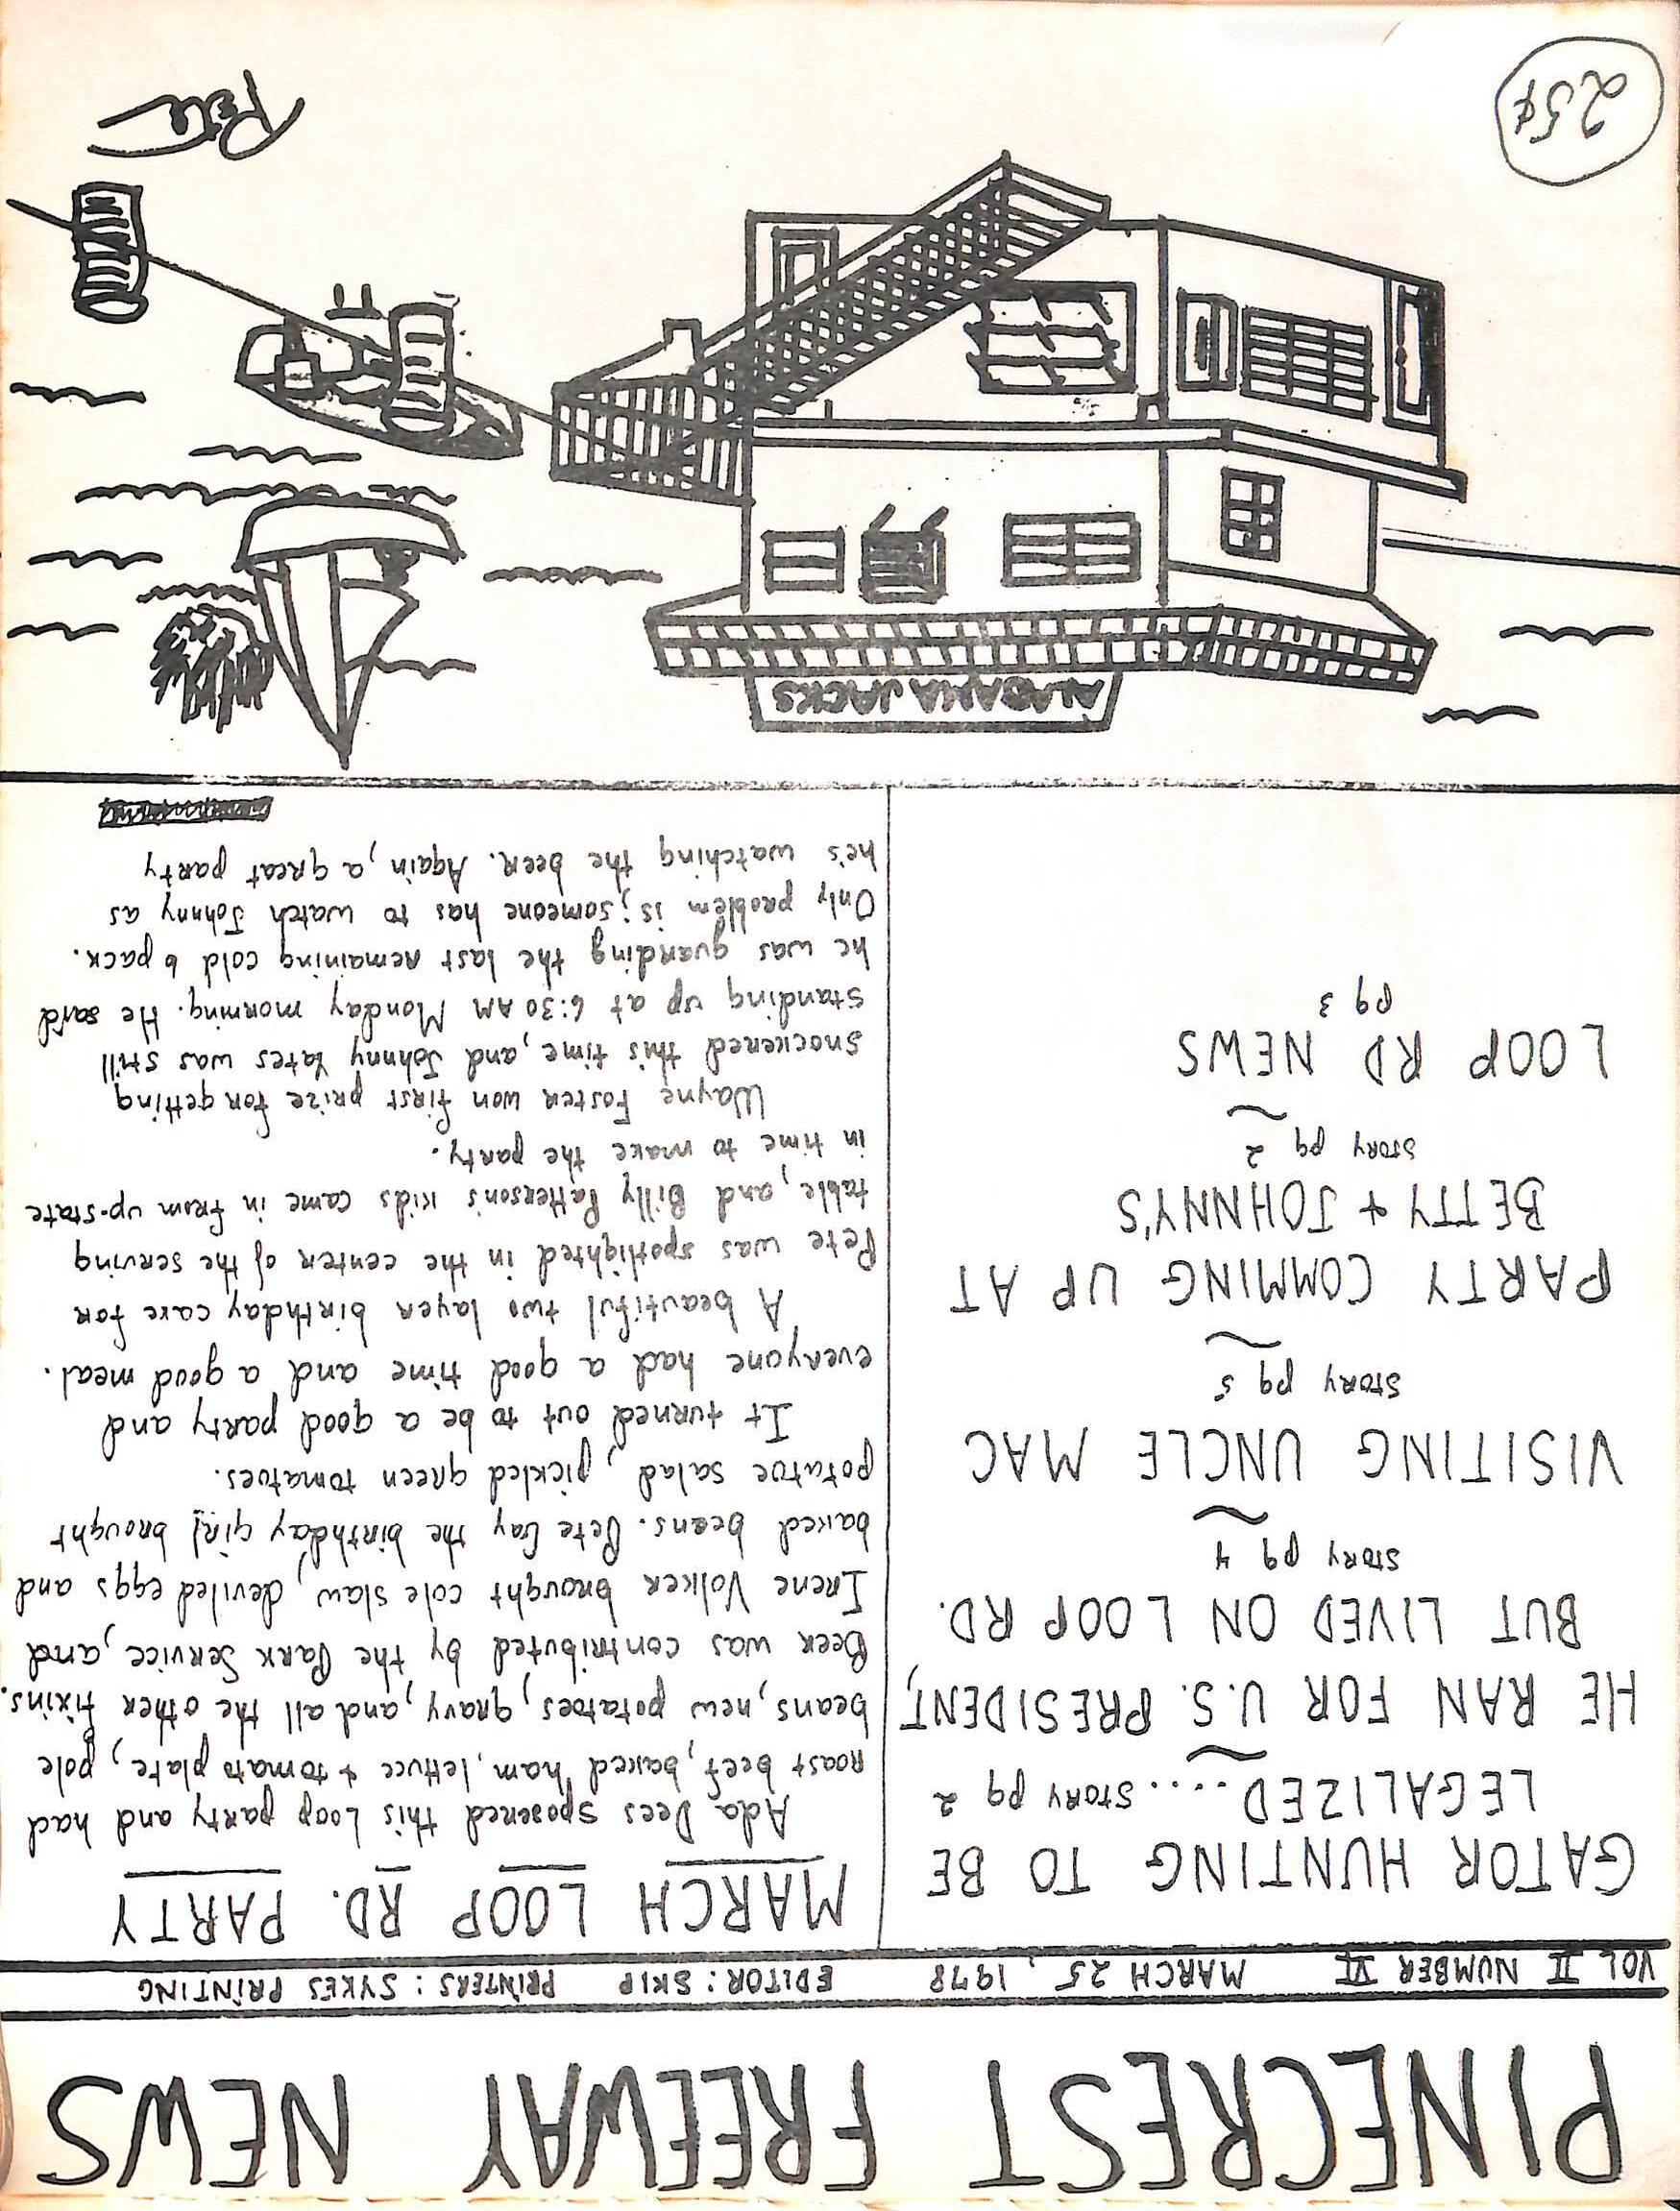 PINECREST FREEWAY NEWS
VOL II NUMBER VI MARCH 25, 1978 EDITOR: SKIP PRINTERS: SYKES PRINTING
GATOR HUNTING TO BE
LEGALIZED.... STORY pg 2
HE RAN FOR U.S. PRESIDENT,
BUT LIVED ON LOOP RD.
STORY pg 4
VISITING UNCLE MAC
STORY pg 5
PARTY COMMING UP AT
BETTY + JOHNNY'S
STORY pg 2
LOOP RD NEWS
pg 3
MARCH LOOP RD. PARTY
Ada Dees sposered this Loop party and had
roast beef, baked ham, lettuce + tomato plate, pole
beans, new potatoes, gravy, and all the other fixins.
Beer was contributed by the Park Service, and
Irene Volker brought cole slaw, deviled eggs and
baked beans. Pete Gay the birthday girl brought
potatoe salad, pickled green tomatoes.
It turned out to be a good party and
everyone had a good time and a good meal.
A beautiful two layer birthday cake for
Pete was spotlighted in the center of the serving
table, and Billy Patterson's kids came in from up-state
in time to make the party.
Wayne Foster won first prize for getting
snockered this time, and Johnny Yates was still
standing up at 6:30 AM Monday morning. He said
he was guarding the last remaining cold 6 pack.
Only problem is; someone has to watch Johnny as
he's watching the beer. Again, a great party
ALABAMA JACKS
25¢
Pete